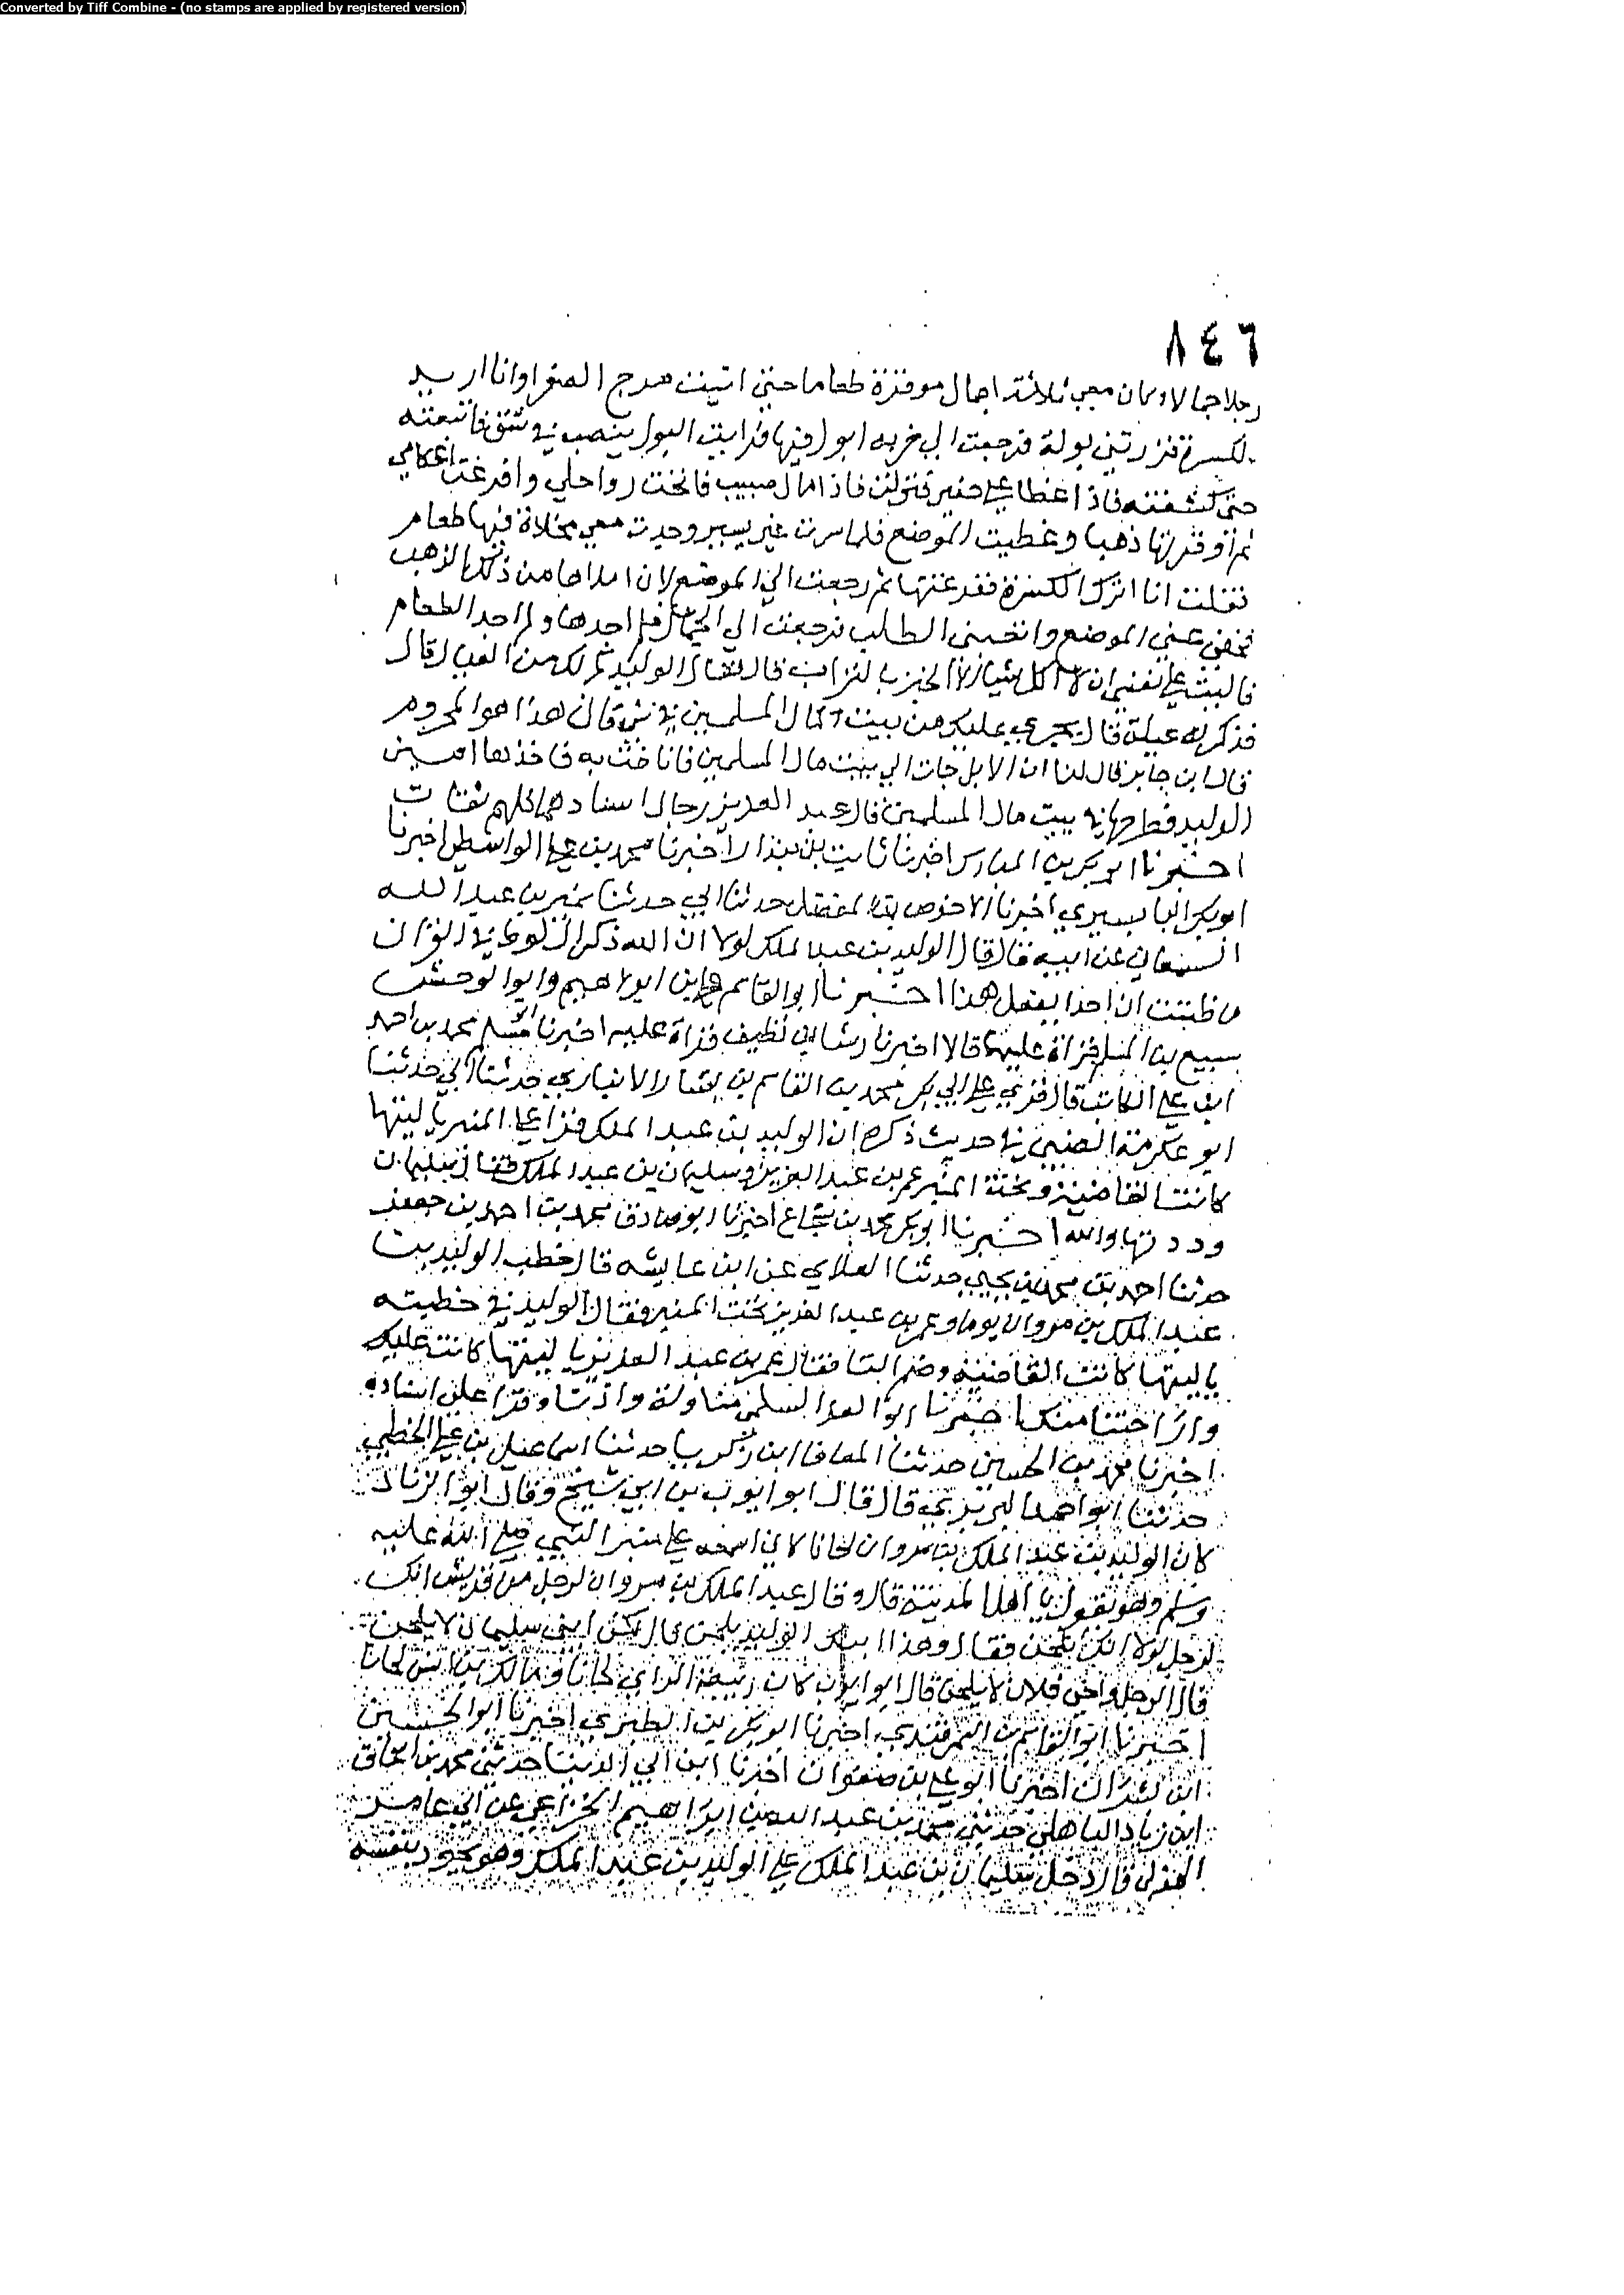 Converted by Tiff Combine - (no stamps are applied by registered version)
٨٤٦
رجلا جمالا وكان معي ثلاثة اجمال موقرة طعاما حتى اتيت مرج الصفرا وانا اريد
الكسوة فزرتني بولة فرجعت الى خربه ابول فيها فرايت البول ينصب في شق فاتبعته
حتى كشفته فاذا غطا على حفير فنزلت فاذا مال صبيب فانخت رواحلي وافرغت اعكامي
ثم اوقرتها ذهبا وغطيت الموضع فلما سرت غير يسير وجدت معي مخلاة فيها طعام
فقلت انا اترك الكسرة ففرغتها ثم رجعت الى الموضع لان املاها من ذلك الذهب
فخفي عني الموضع واتعبني الطلب فرجعت الى الجمال فلم اجدها ولم اجد الطعام
فاليت على نفسي ان لا اكل شيا الا الخبز بالتراب قال فقال الوليد كم لك من العيال قال
فذكر له عيلة قال يجري عليك من بيت مال المسلمين قال هذا هو المحروم
قال ابن جابر قال لنا ان الابل جات الى بيت مال المسلمين فاناخت به فاخذها امين
الوليد فطرحها في بيت مال المسلمين قال عبد العزيز رجال اسناد هما كلهم ثقات
اخبرنا ابو بكر بن المبارك اخبرنا ثابت بن بندار اخبرنا محمد بن علي الواسطي اخبرنا
ابو بكر البابسيري اخبرنا الاحوص بن المفضل حدثنا ابي حدثنا نمير بن عبد الله
الشعناني عن ابيه قال قال الوليد بن عبد الملك لولا ان الله ذكر ال لوط في القران
ما ظننت ان احدا يفعل هذا اخبرنا ابو القاسم علي بن ابراهيم وابو الوحش
سبيع بن المسلم قراة عليهما قالا اخبرنا رشا بن نظيف قراة عليه اخبرنا ابو مسلم محمد بن احمد
ابن علي الكاتب قال قري على ابي بكر محمد بن القاسم بن بشار الانباري حدثنا ابي حدثنا
ابو عكرمة الضبي في حديث ذكره ان الوليد بن عبد الملك قرا على المنبر يا ليتها
كانت القاضية وتحت المنبر عمر بن عبد العزيز وسليمان بن عبد الملك فقال سليمان
وددتها والله اخبرنا ابو بكر محمد بن شجاع اخبرنا ابو صادق محمد بن احمد بن جعفر
حدثنا احمد بن محمد بن يحيى حدثنا الغلابي عن ابن عايشه قال خطب الوليد بن
عبد الملك بن مروان يوما وعمر بن عبد العزيز تحت المنبر فقال الوليد في خطبته
يا ليتها كانت القاضية وضم التا فقال عمر بن عبد العزيز يا ليتها كانت عليك
واراحتنا منك اخبرنا ابو العز السلمي مناولة واذنا وقرا علي اسناده
اخبرنا محمد بن الحسين حدثنا المعافا ابن زكريا حدثنا اسماعيل بن علي الخطبي
حدثنا ابو احمد البربري قال قال ابو ايوب بن ابي شيخ وقال ابو الزناد
كان الوليد بن عبد الملك بن مروان لحانا كاني اسمعه على منبر النبي صلى الله عليه
وسلم وهو يقول يا اهل المدينة قال وقال عبد الملك بن مروان لرجل من قريش انك
لرجل لولا انك تلحن فقال وهذا ابنك الوليد يلحن قال لكن ابني سليمان لا يلحن
قال الرجل واخي فلان لا يلحن قال ابو ايوب كان ربيعة الراي لحانا ومالك بن انس لحانا
اخبرنا ابو القاسم بن السمرقندي اخبرنا ابو بكر بن الطبري اخبرنا ابو الحسين
ابن بشران اخبرنا ابو علي بن صفوان اخبرنا ابن ابي الدنيا حدثني محمد بن اسحاق
ابن زياد الباهلي حدثني محمد بن عبد الله بن ابراهيم الخزاعي عن ابي عامر
الهذلي قال دخل سليمان بن عبد الملك على الوليد بن عبد الملك وهو يجود بنفسه